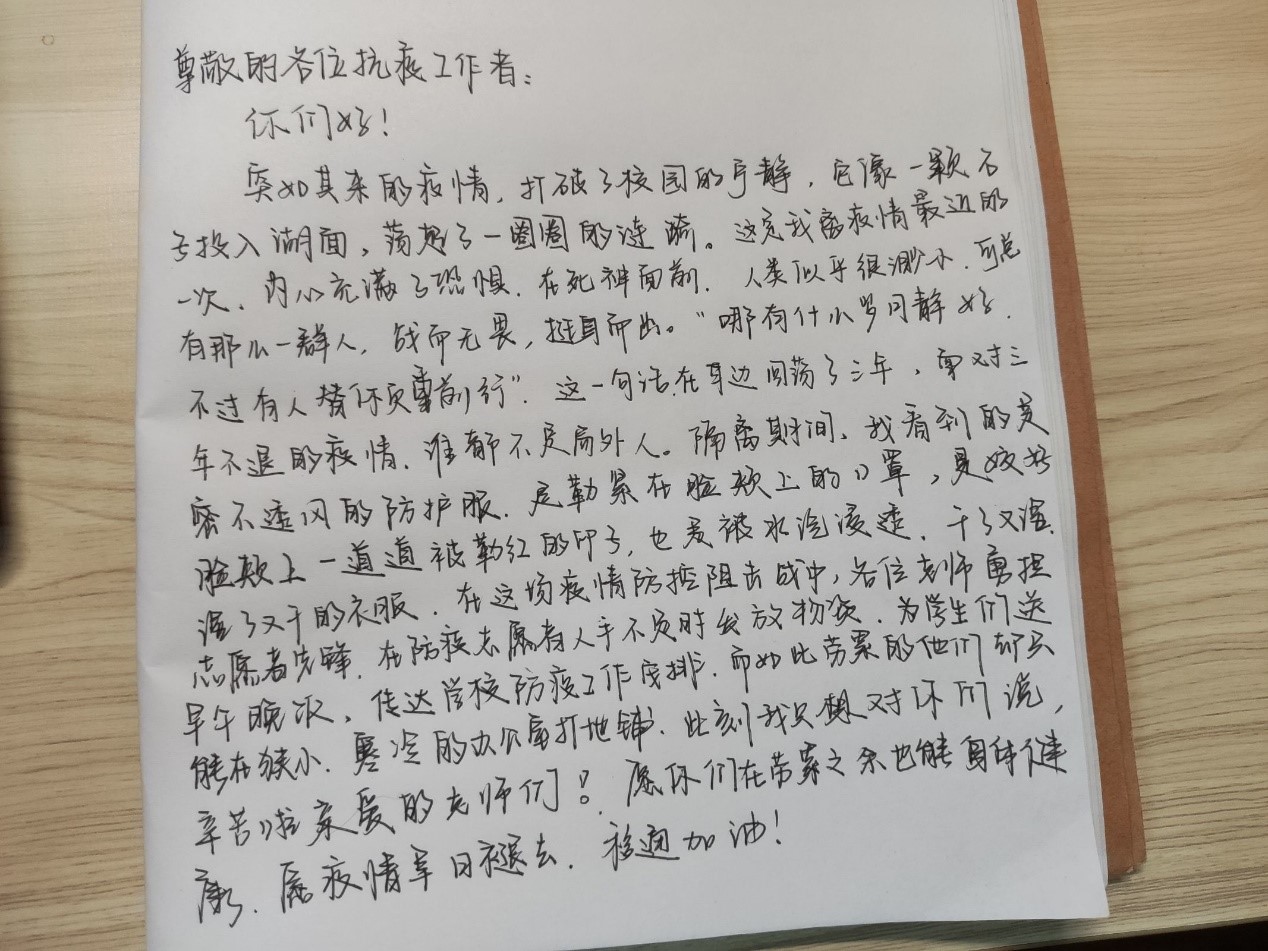 尊敬的各位抗疫工作者:
你们好!
突如其来的疫情,打破了校园的宁静,它像一颗石
子投入湖面,荡起了一圈圈的涟漪。这是我离疫情最近的
一次,内心充满了恐惧,在死神面前,人类似乎很渺小,可总
有那么一群人,战而无畏,挺身而出。“哪有什么岁月静好,
不过有人替你负重前行”,这一句话在耳边回荡了三年,面对三
年不退的疫情,谁都不是局外人。隔离期间,我看到的是
密不透风的防护服,是勒紧在脸颊上的口罩,是姣好
脸颊上一道道被勒红的印子,也是被水浸透,干了又湿,
湿了又干的衣服,在这场疫情防控阻击战中,各位老师勇担
志愿者先锋,在防疫志愿者人手不足时发放物资,为学生们送
早午晚饭,传达学校防疫工作安排,而如此劳累的他们却只
能在狭小、寒冷的办公室打地铺,此刻我只想对你们说,
辛苦啦亲爱的老师们!愿你们在劳累之余也能身体健
康,愿疫情早日褪去,加油!